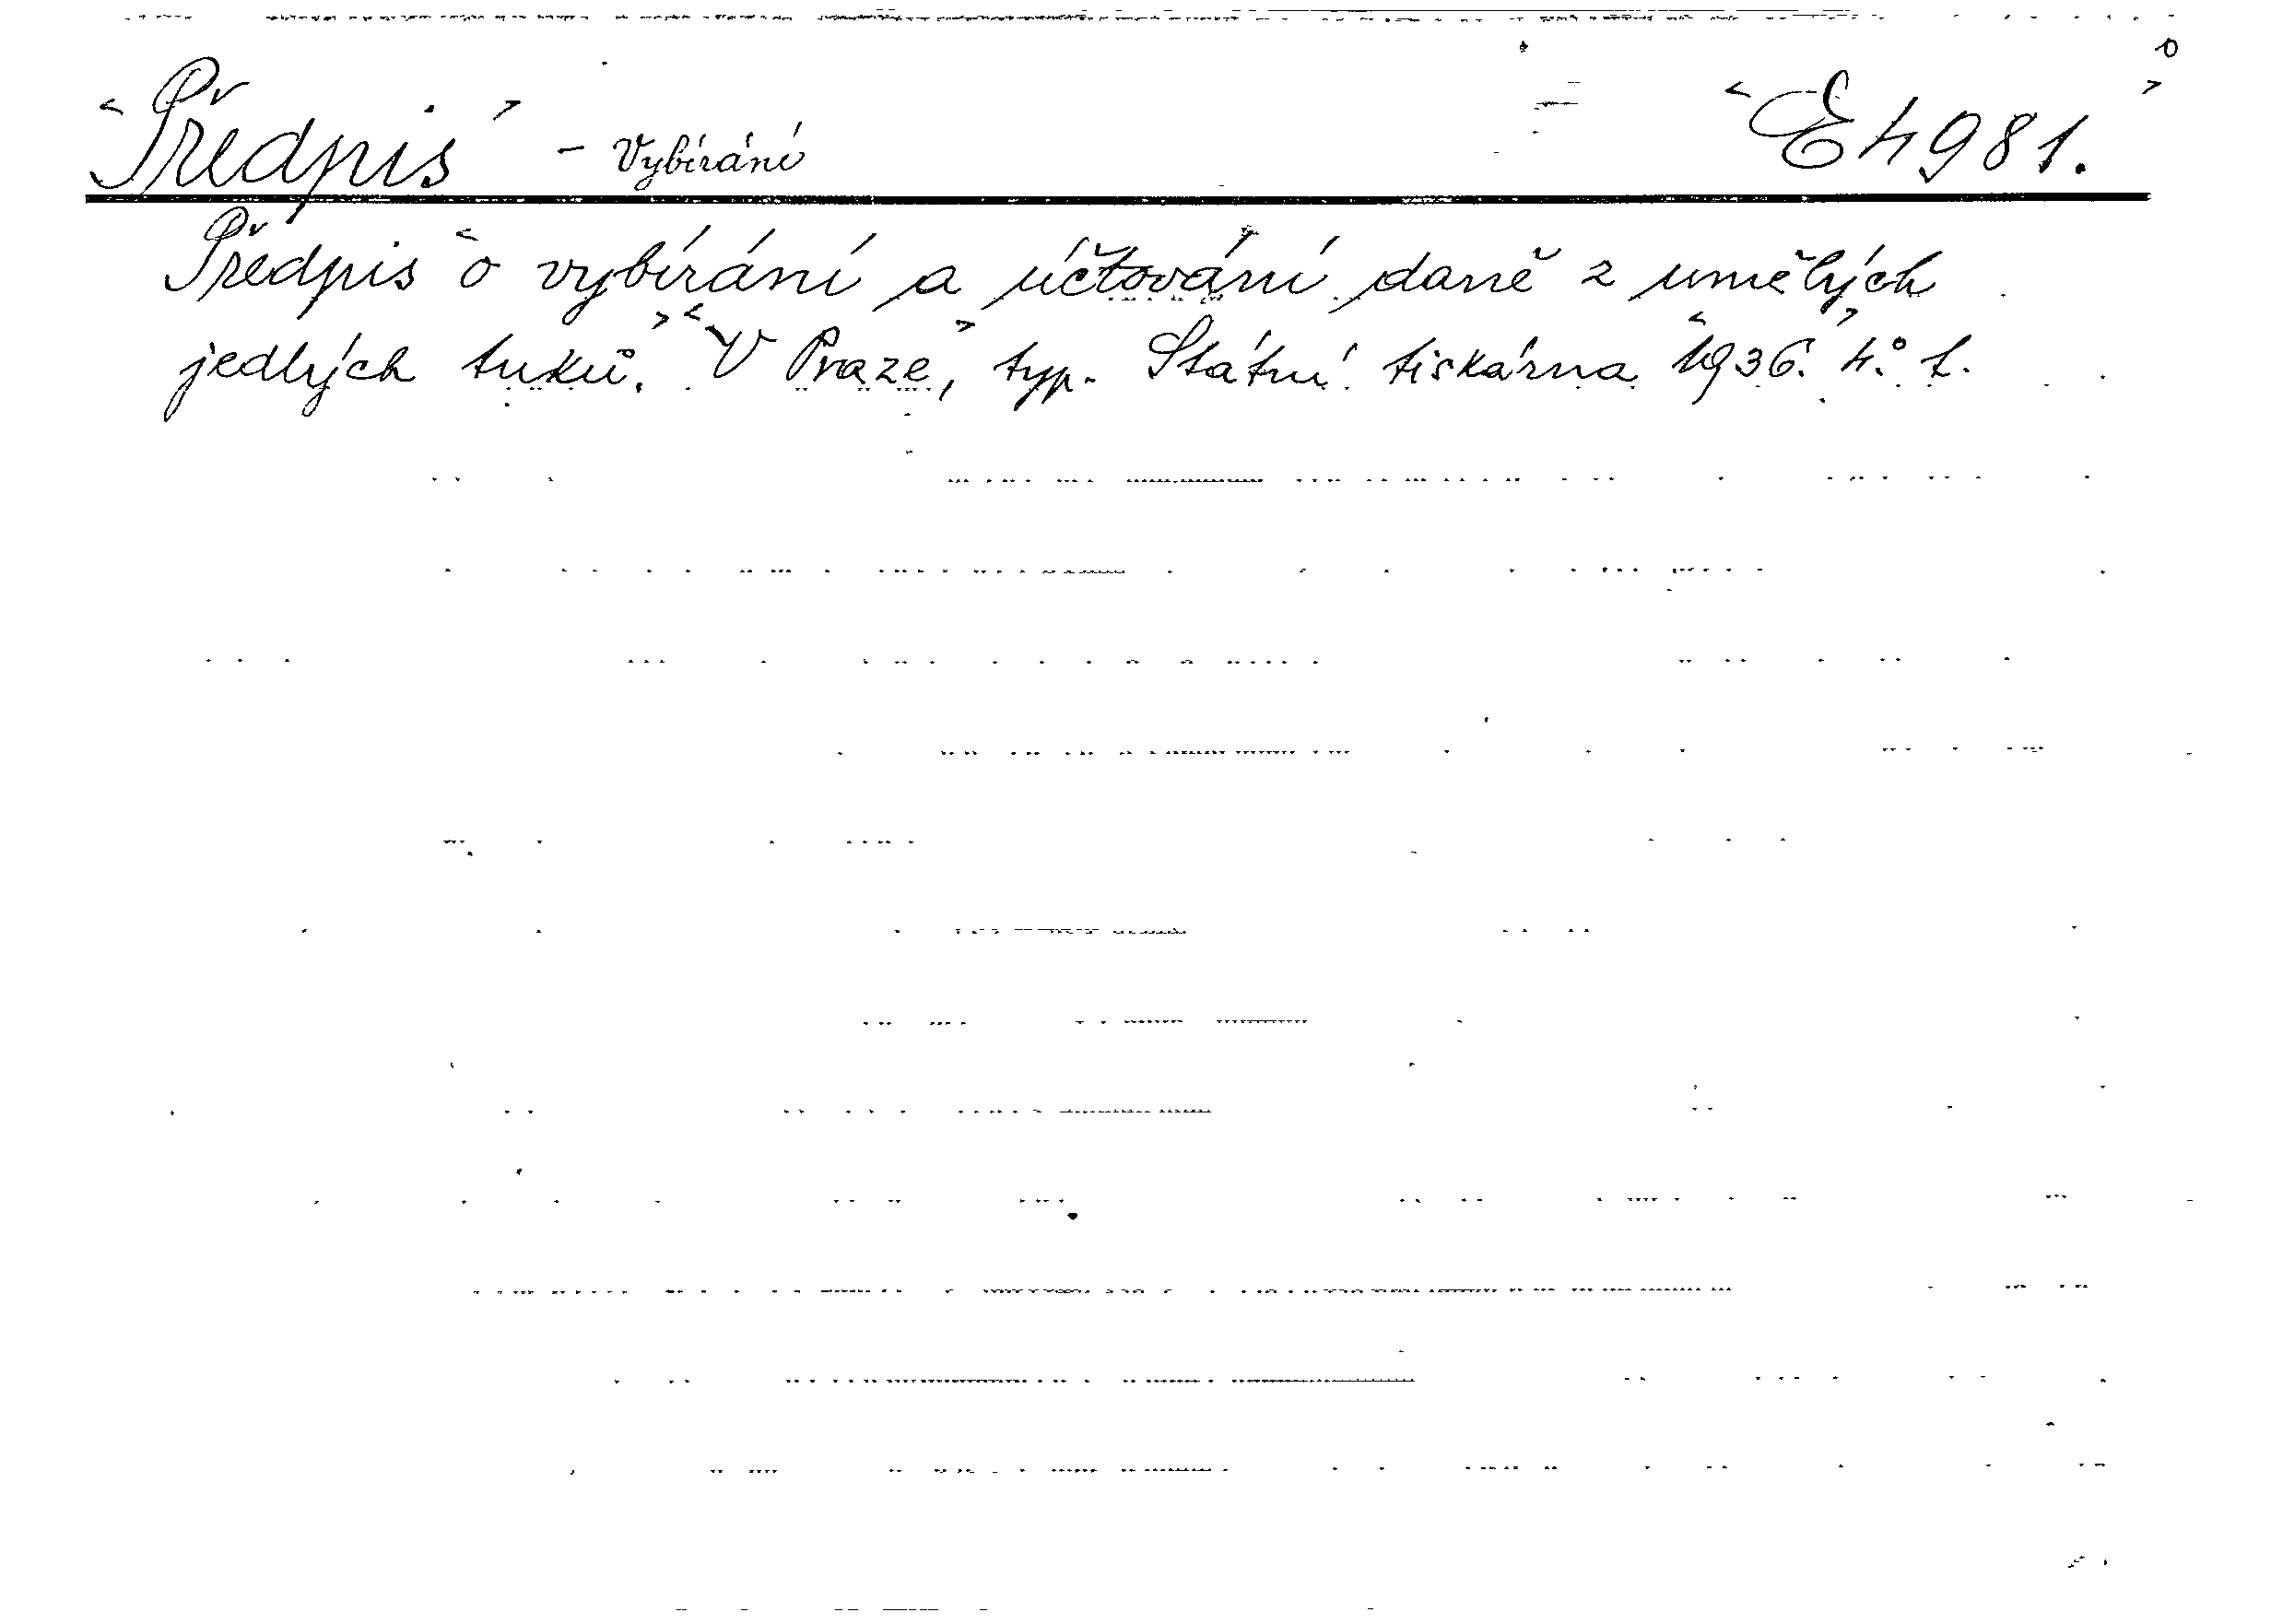 Předpis - Vybírání E 4981.
Předpis o vybírání a účtování daně z umělých
jedlých tuků. V Praze, typ. Státní tiskárna 1936. 4.° 1.